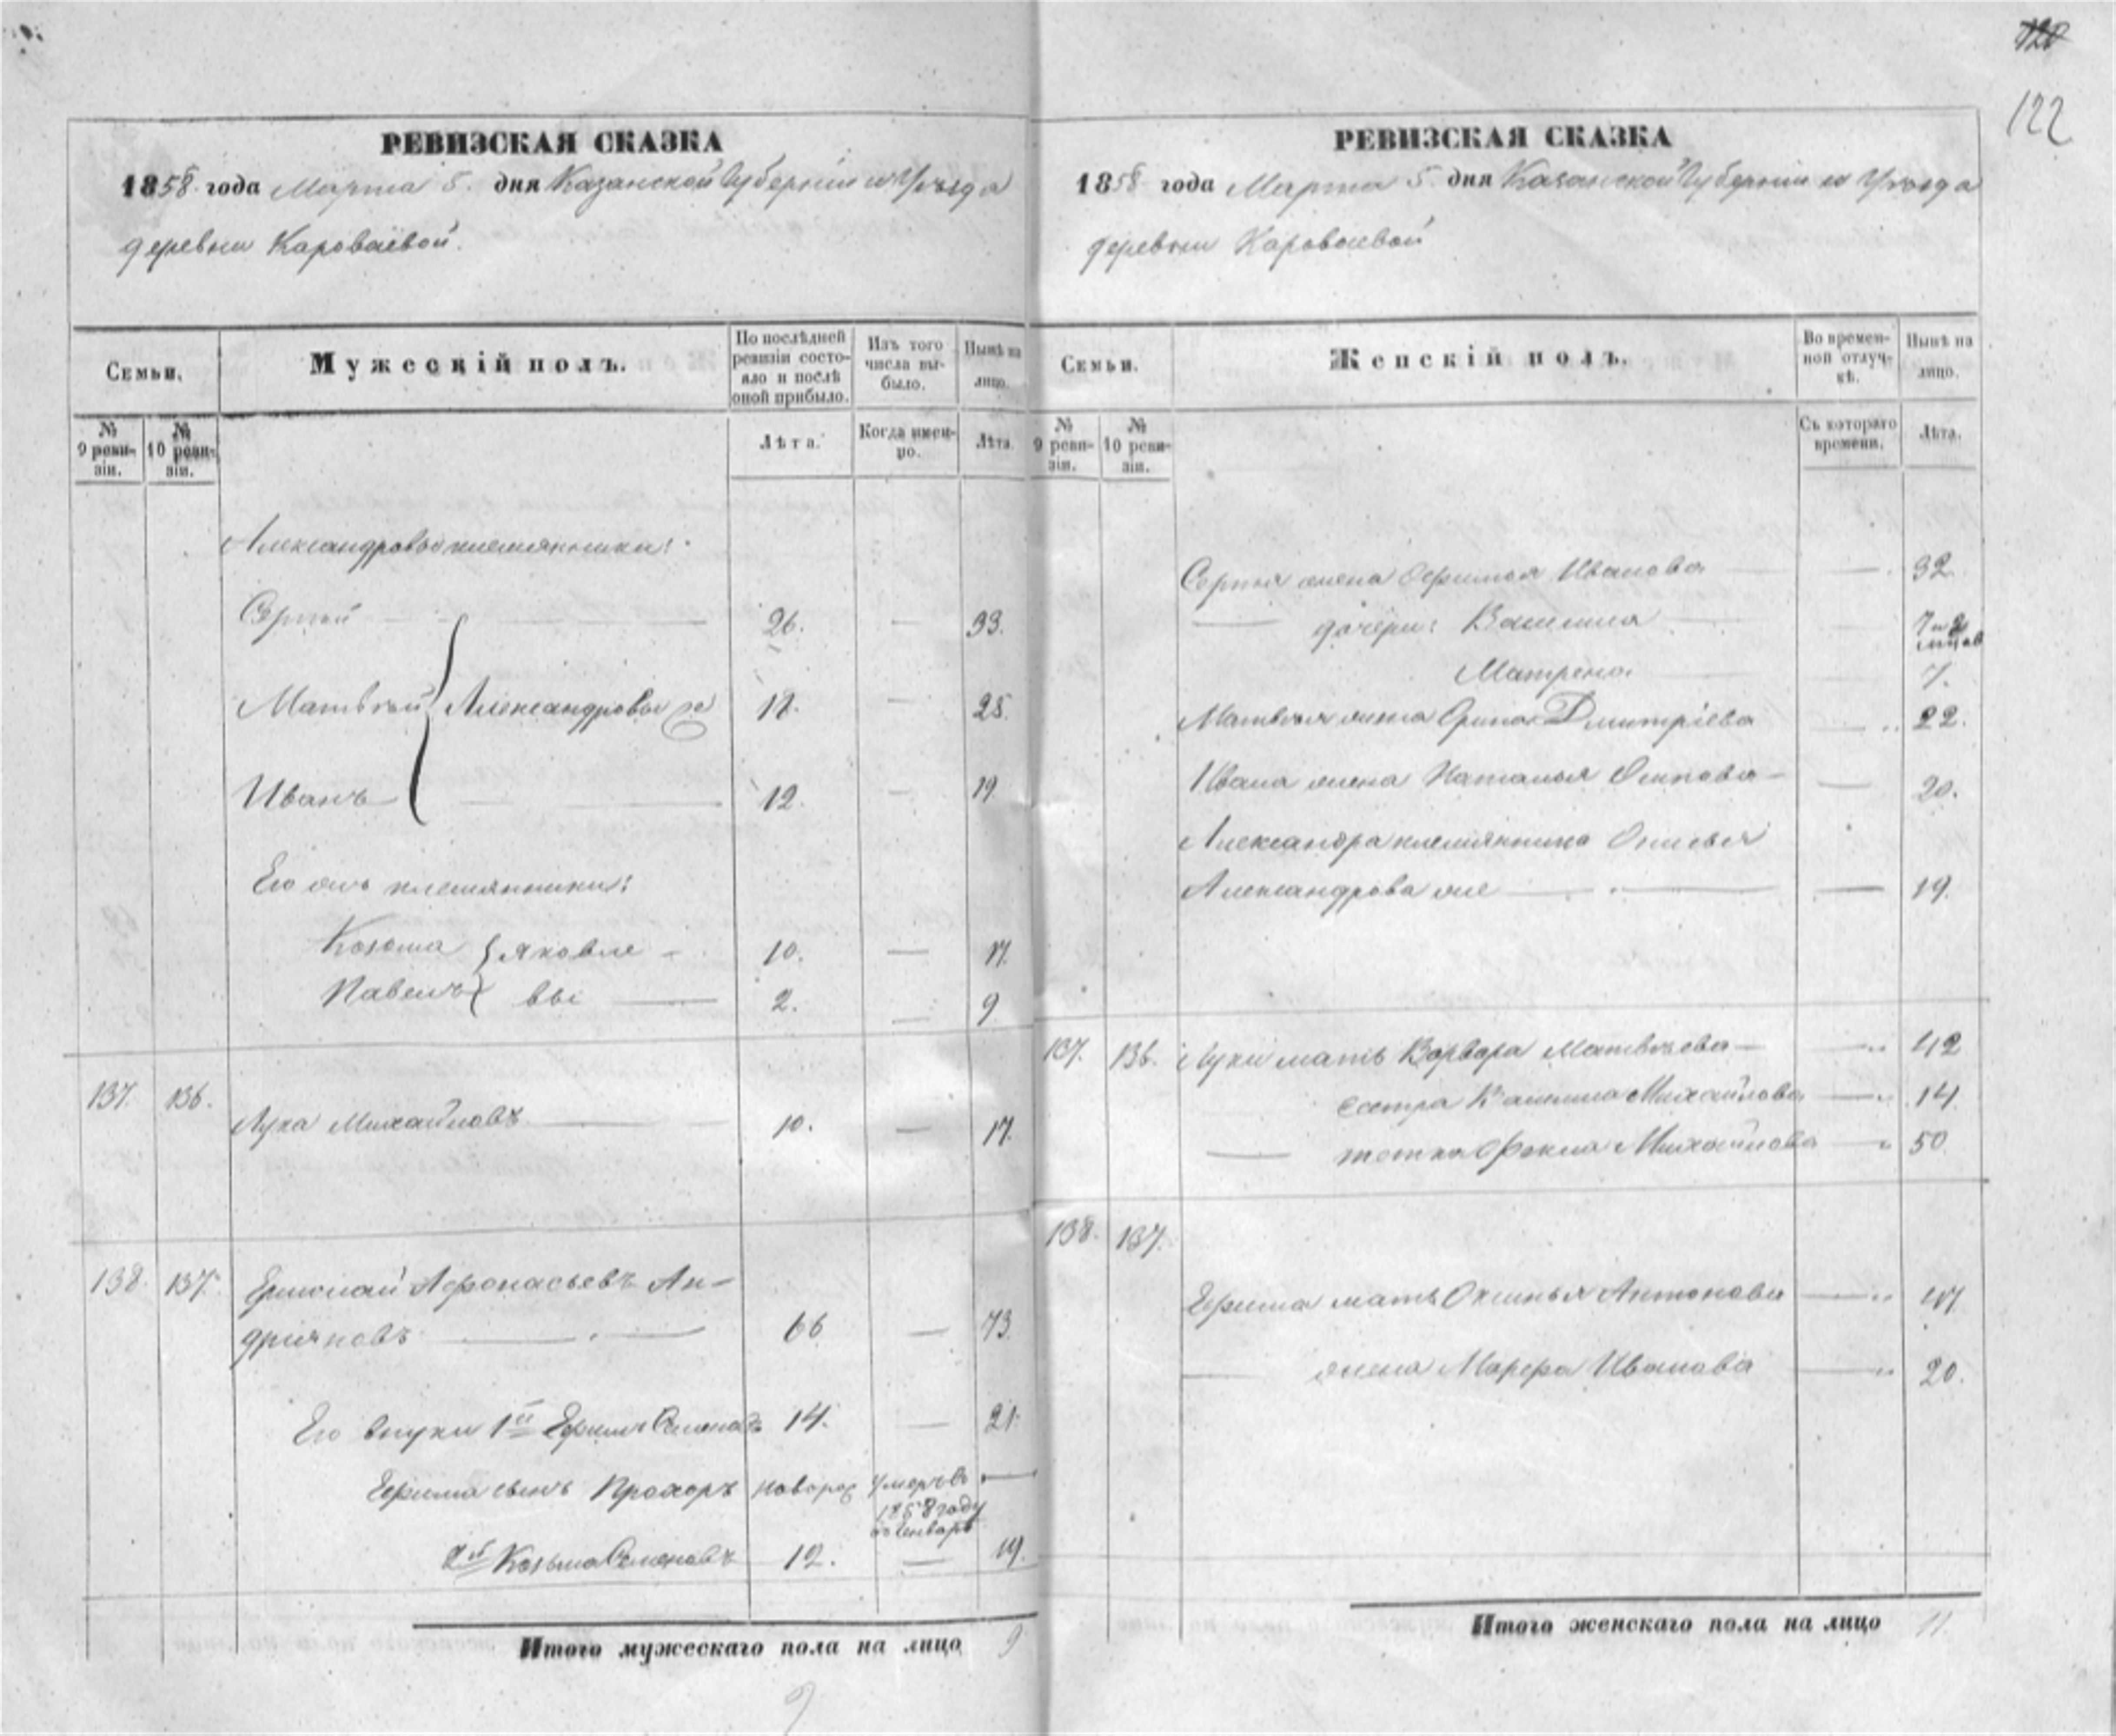 120
122
РЕВИЗСКАЯ СКАЗКА
1858 года Марта 5. дня Казанской Губерніи и Уѣзда
деревни Короваевой.
Семьи.
Мужескій полъ.
По послѣдней
ревизіи состо-
яло и послѣ
оной прибыло.
Изъ того
числа вы-
было.
Нынѣ на
лицо.
№
9 реви-
зіи.
№
10 реви-
зіи.
Лѣта.
Когда имен-
но.
Лѣта.
Александровы племянники:
Сергей 26. — 33.
Матвей Александровы же 18. — 25.
Иванъ 12. — 19.
Его же племянники:
Козьма Яковле- 10. — 17.
Павелъ вы 2. — 9.
137. 136.
Лука Михайловъ 10. — 17.
138. 137.
Ермолай Афонасьевъ Ан-
дрияновъ 66 — 73.
Его внуки 1й Ефимъ Семеновъ 14. — 21.
Ефима сынъ Прохоръ новорож умеръ въ —
1858 году
въ Январѣ
2й Козьма Семеновъ 12. — 19.
Итого мужескаго пола на лицо 9
9
РЕВИЗСКАЯ СКАЗКА
1858 года Марта 5. дня Казанской Губерніи и Уѣзда
деревни Короваевой
Семьи.
Женскій полъ.
Во времен-
ной отлуч-
кѣ.
Нынѣ на
лицо.
№
9 реви-
зіи.
№
10 реви-
зіи.
Съ котораго
времени.
Лѣта.
Сергея жена Офимья Иванова — 32.
дочери: Василиса 7 и 2 месяцов
Матрена 7.
Матвея жена Орина Дмитріева — 22.
Ивана жена Наталья Осипова — 20.
Александра племянница
Александрова же — 19.
137. 136. Луки мать Варвара Матвеева — 42
сестра Михайлова — 14
тетка Фекла Михайлова — 50.
138. 137.
Ефима мать Оксинья Антонова — 47
жена Марфа Иванова — 20.
Итого женскаго пола на лицо 11.